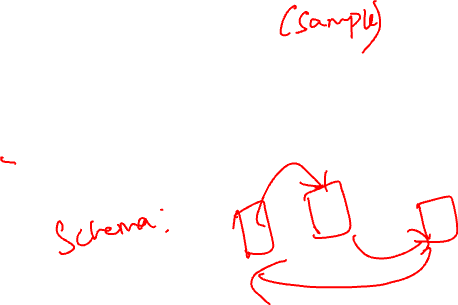 (sample)
Schema: